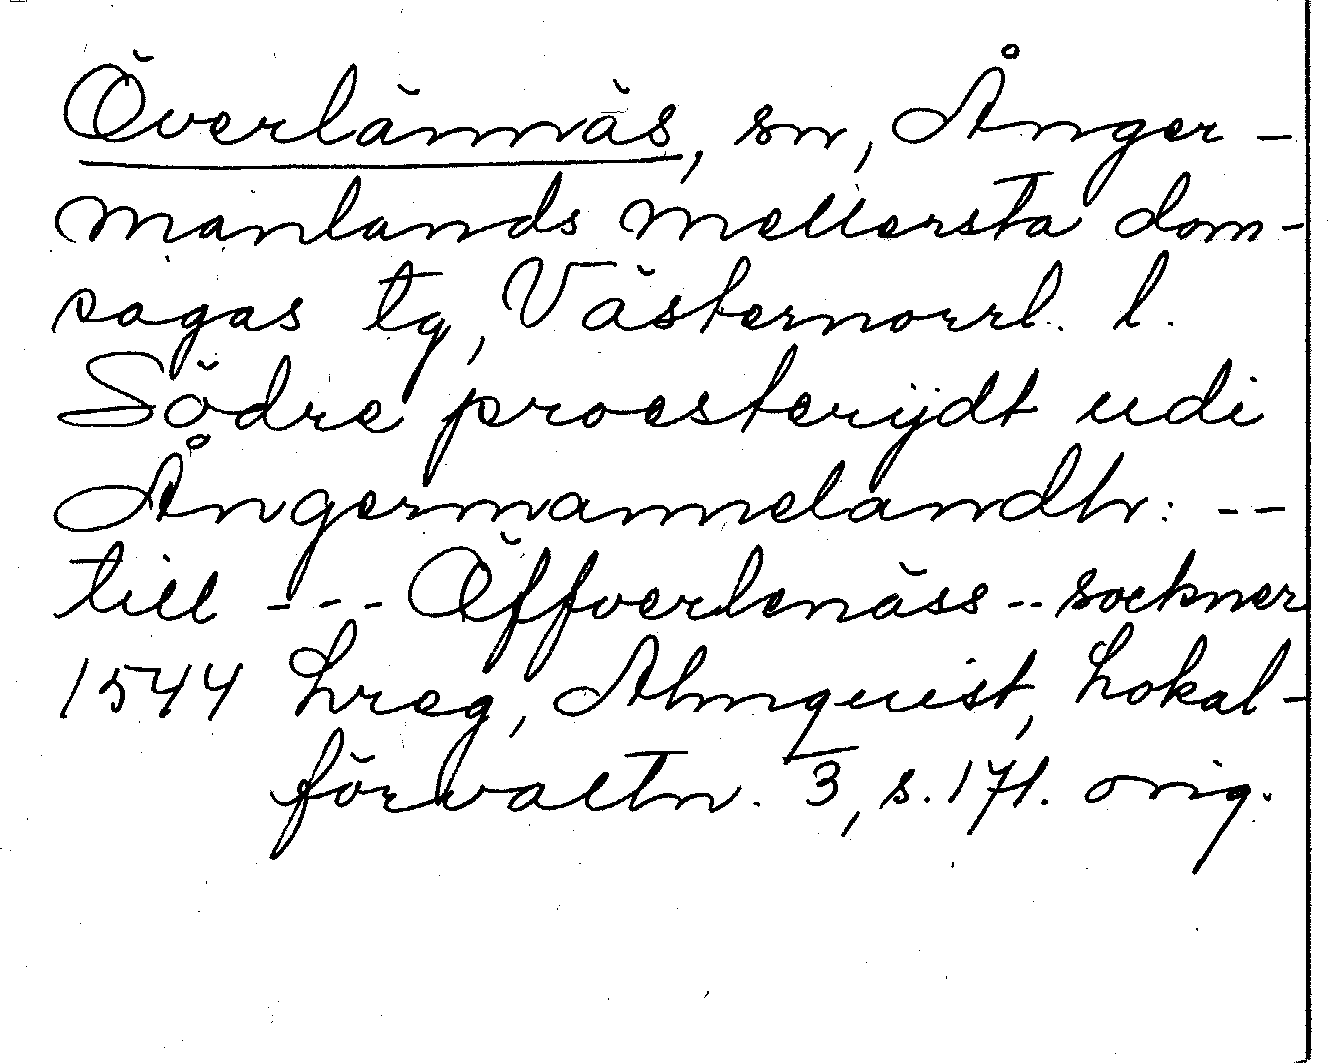 Överlännäs, sn, Ånger-
manlands mellersta dom-
sagas tg, Västernorrl. l.
Södre proesterijdt udi
Ångermannelandh: --
till --- Öffverlenäss -- sockner
1544 Lreg, Almquist, Lokal-
förvaltn. 3, s. 171. orig.